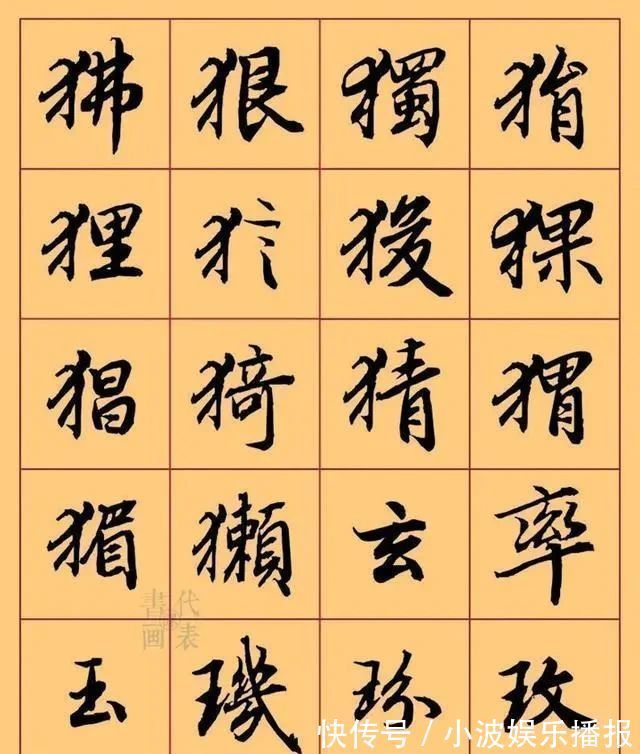 狒 狠 獨 狷
狸 狺 狻 猓
猖 猗 猜 猬
猸 獺 玄 率
玉 璣 玢 玫
代表
書画
快传号 / 小波娱乐播报